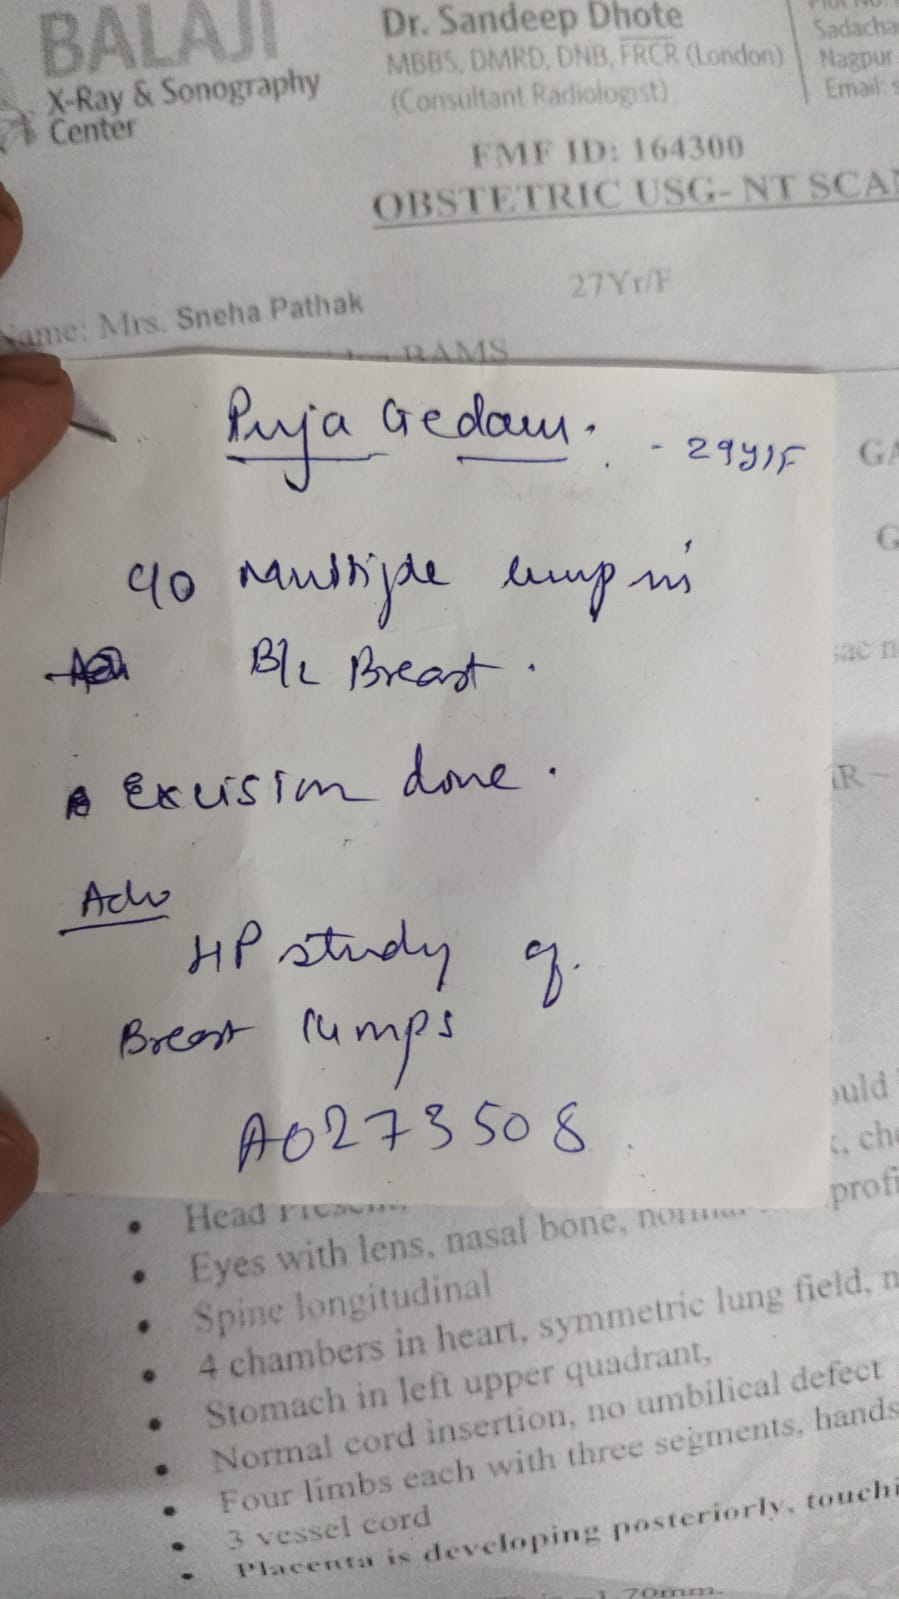 BALAJI
X-Ray & Sonography
Center
Dr. Sandeep Dhote
MBBS, DMRD, DNB, FRCR (London)
(Consultant Radiologist)
Sadacha
Nagpur
Email: s
FMF ID: 164300
OBSTETRIC USG- NT SCAN
Name: Mrs. Sneha Pathak
27Yr/F
BAMS
Puja Gedam. - 29y/F
GA
G
c/o Multiple lump in
B/L Breast.
sac n
Excision done.
R ~
Adv
HP study of.
Breast lumps
ould
A0273508
, che
profi
Head
Eyes with lens, nasal bone,
Spine longitudinal
4 chambers in heart, symmetric lung field, n
Stomach in left upper quadrant,
Normal cord insertion, no umbilical defect
Four limbs each with three segments, hands
3 vessel cord
Placenta is developing posteriorly, touchi
1.70mm.